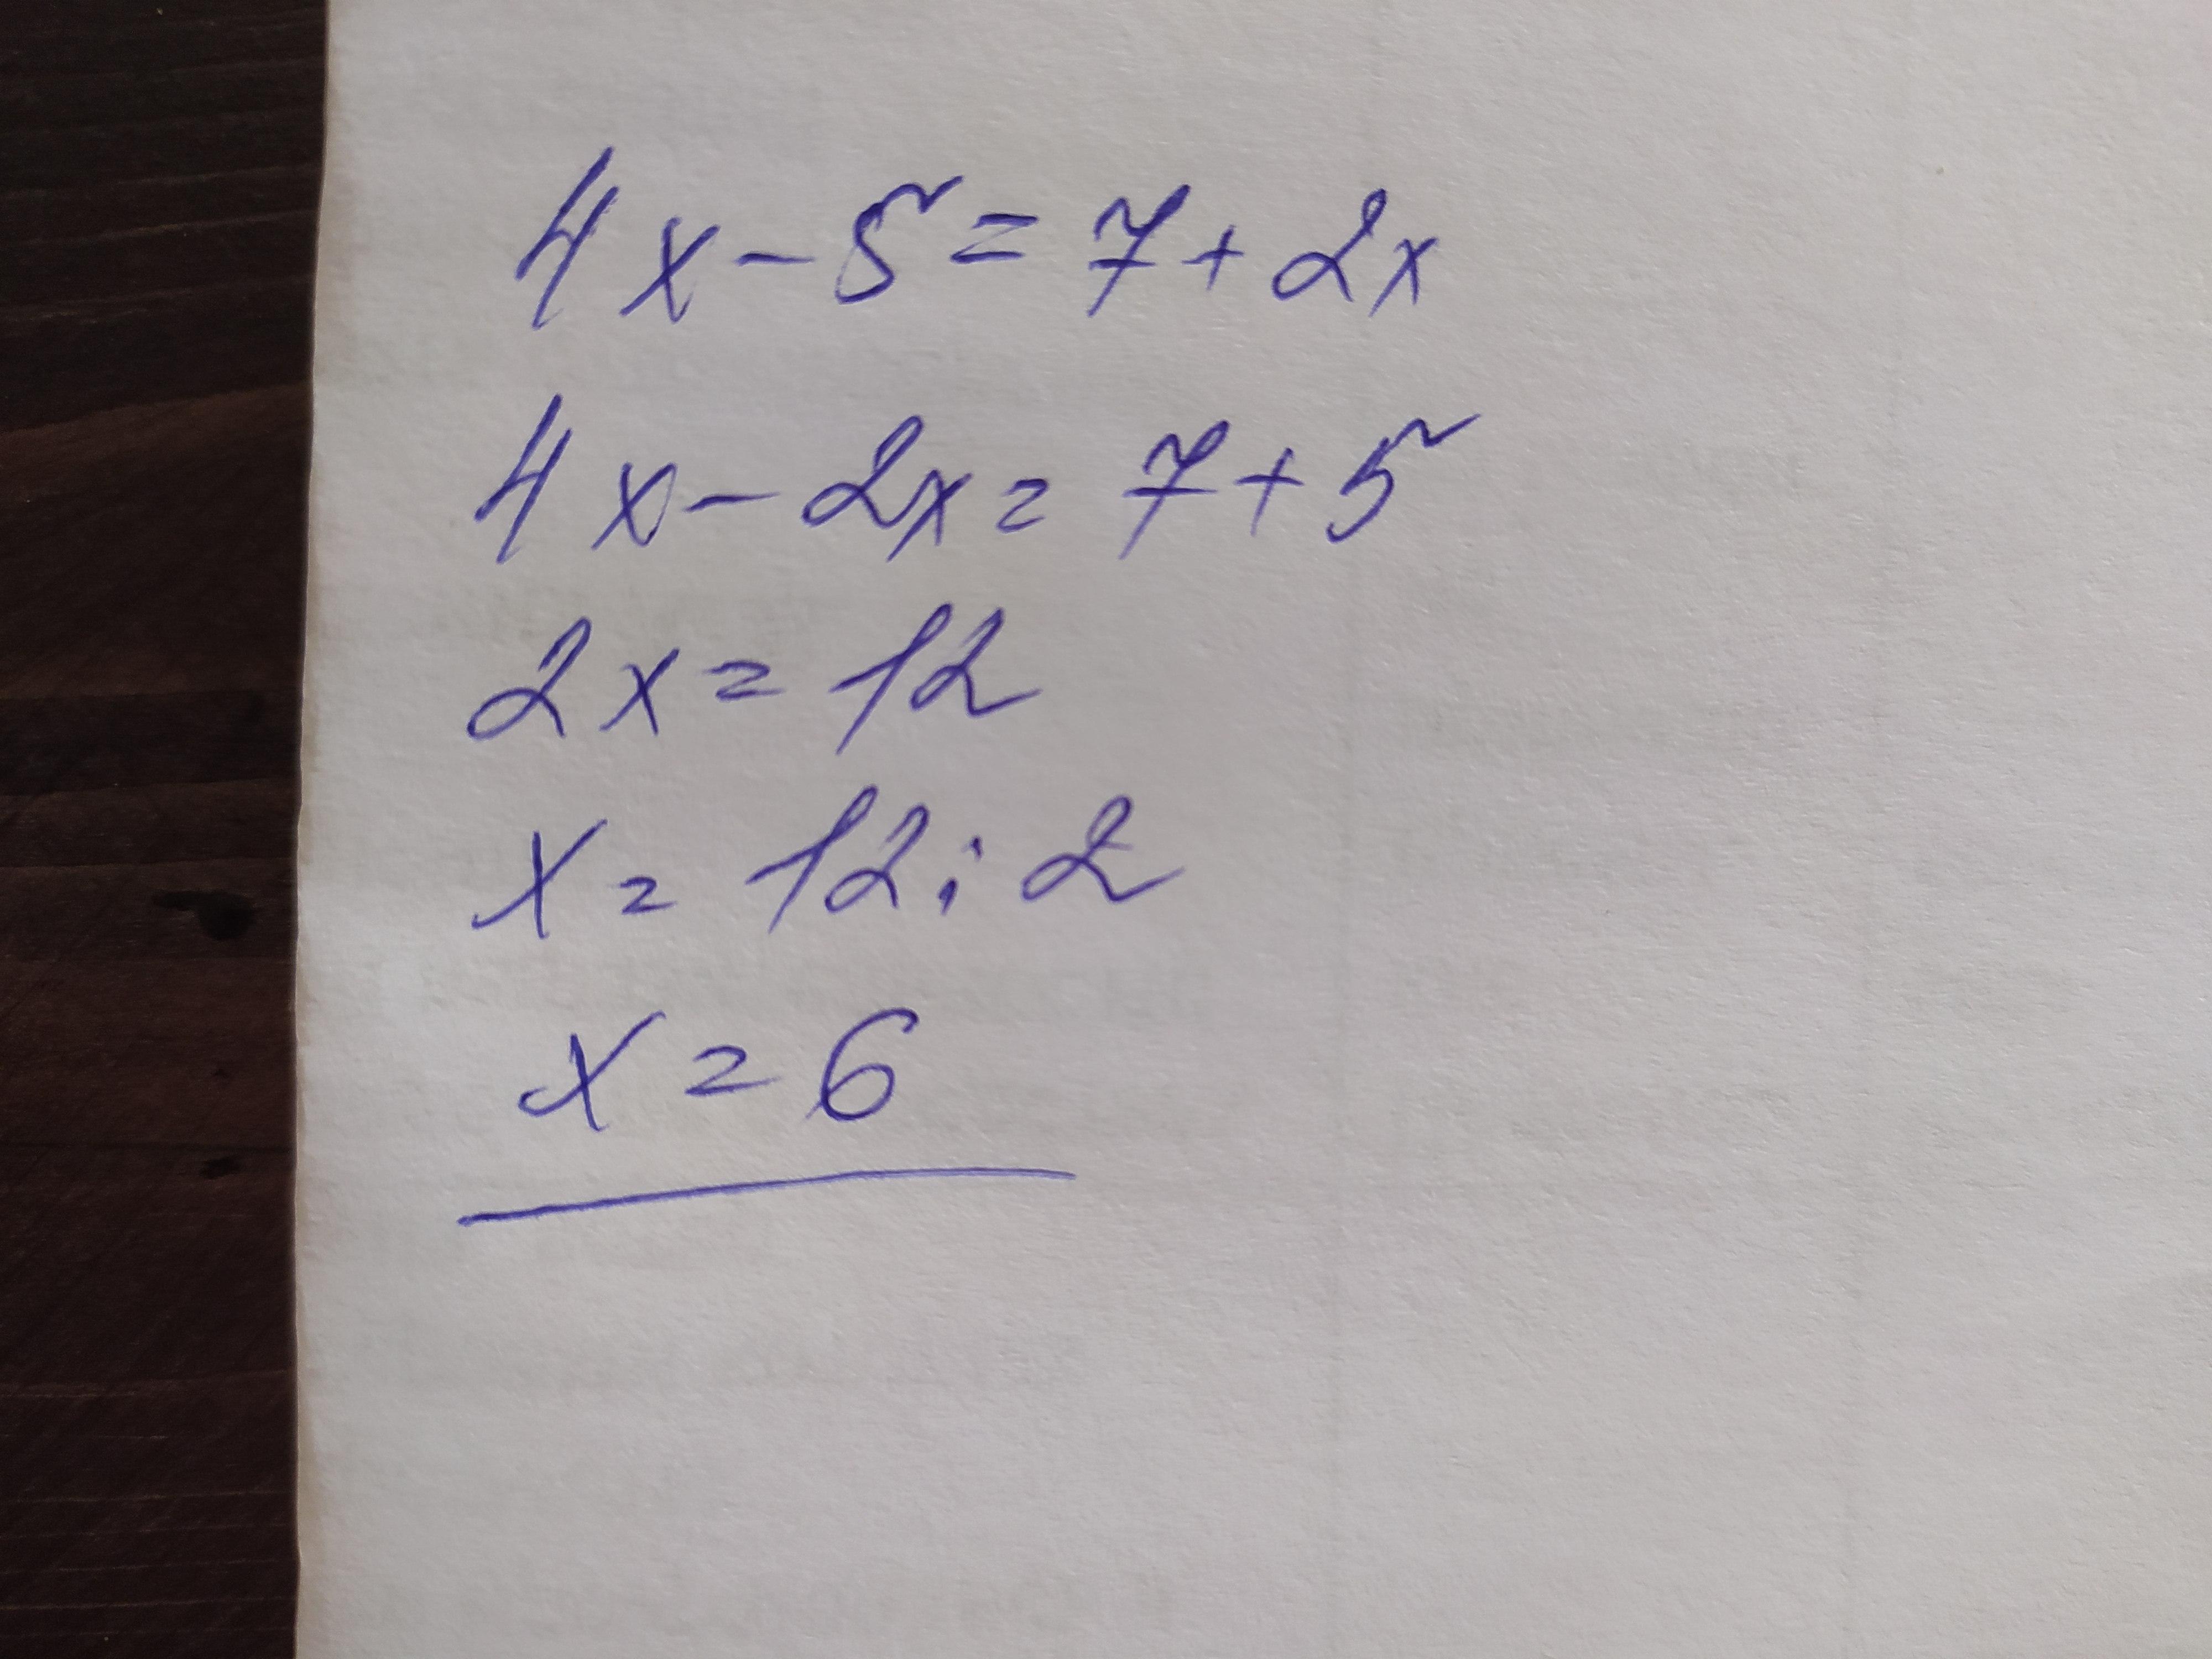 4x-5=7+2x
4x-2x=7+5
2x=12
x=12:2
x=6